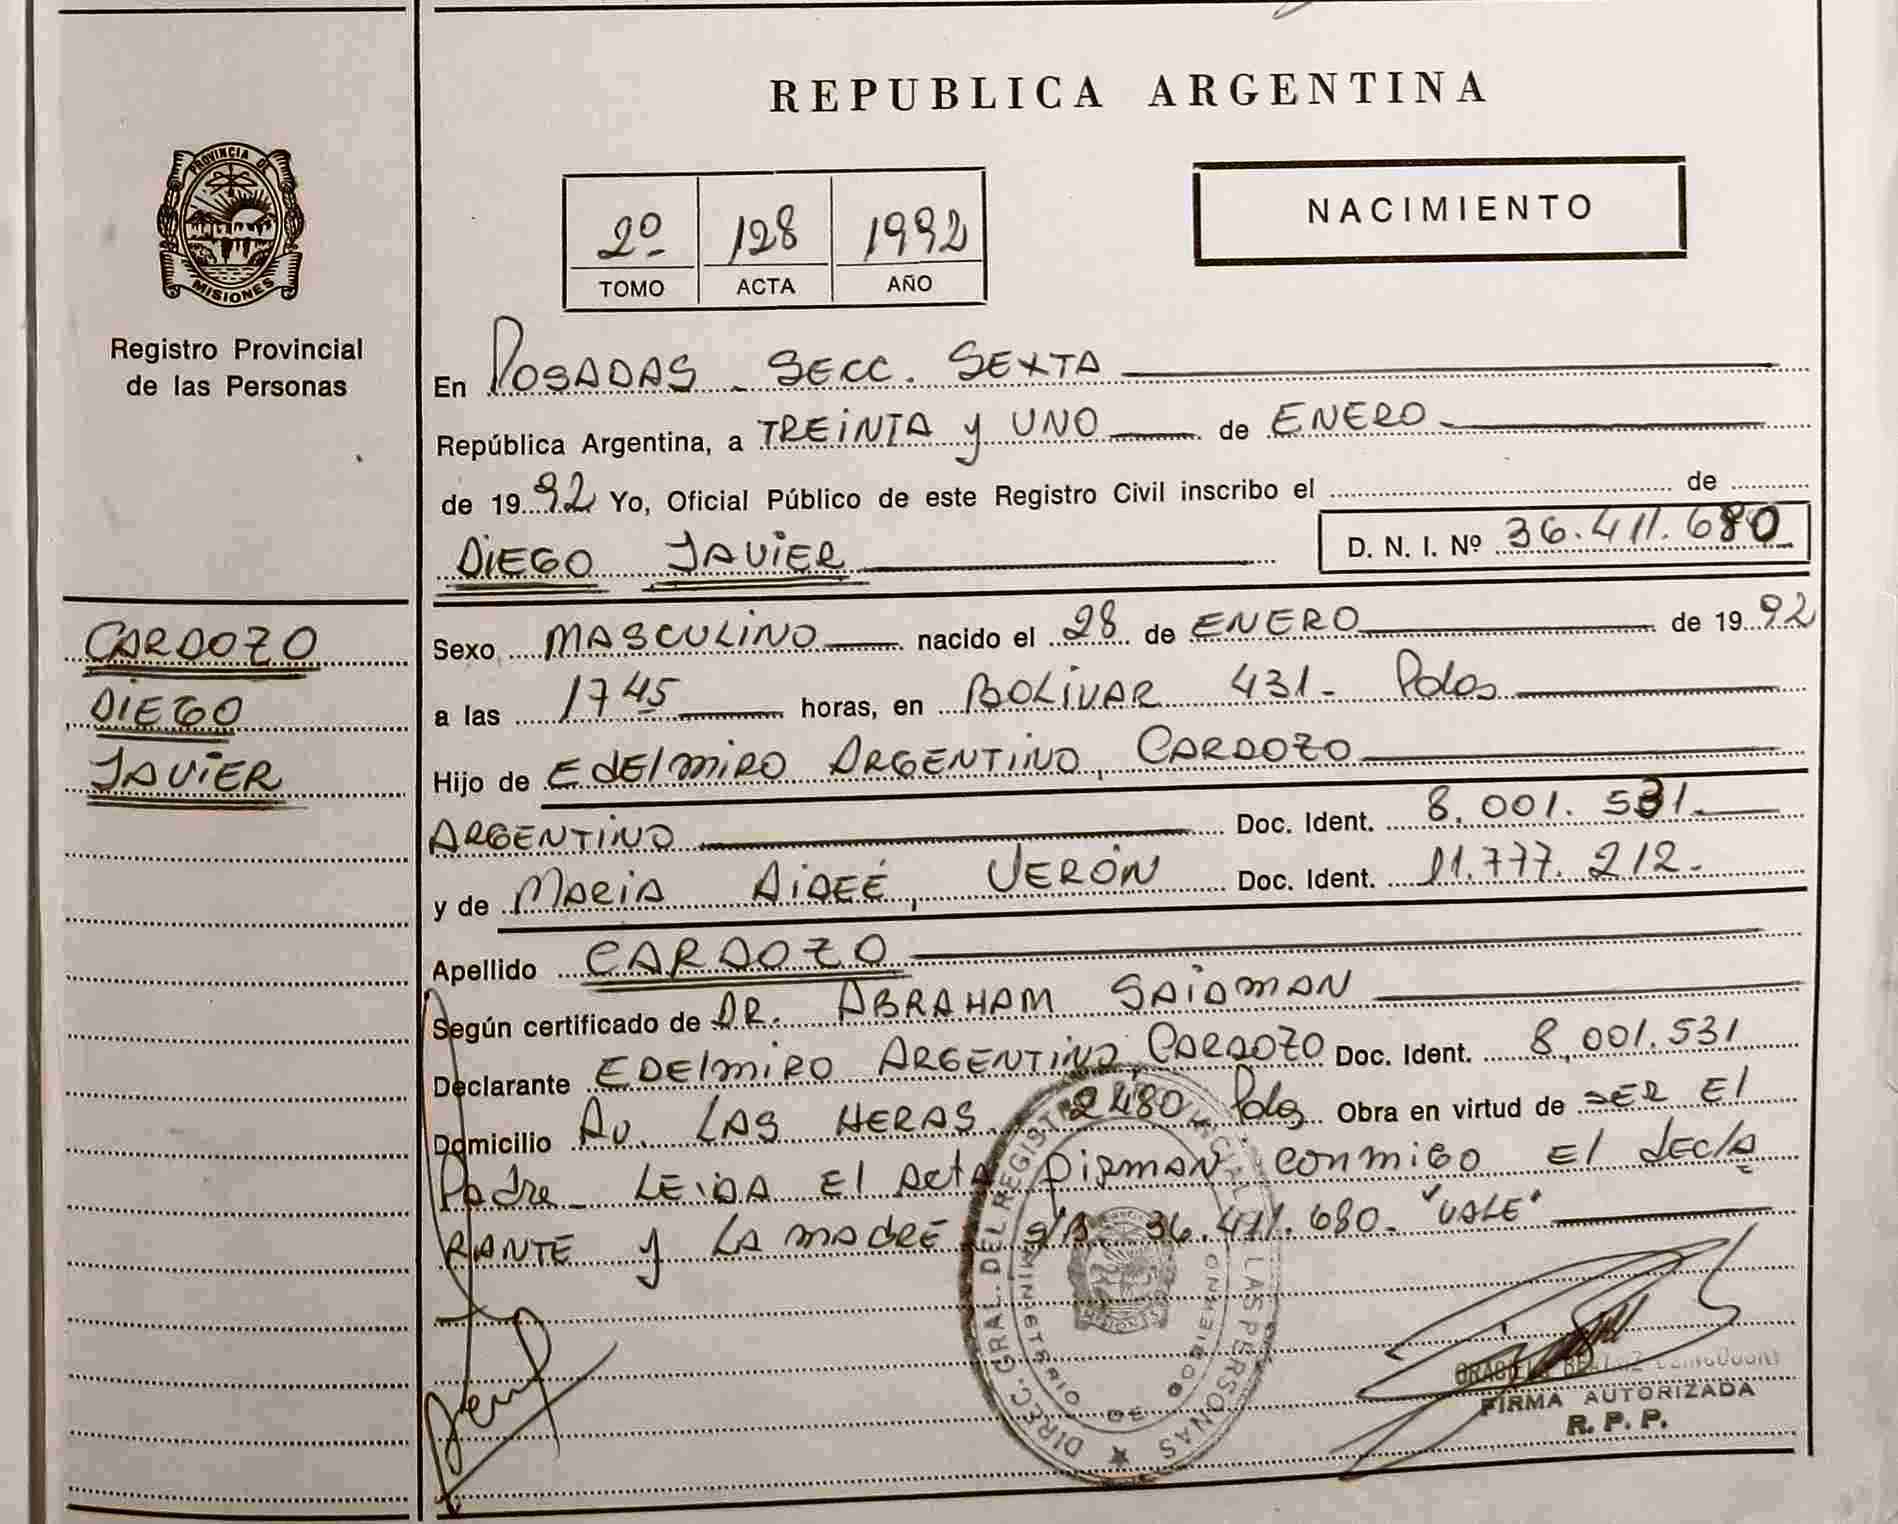 REPUBLICA ARGENTINA
PROVINCIA DE
MISIONES
Registro Provincial
de las Personas
NACIMIENTO
2º 128 1992
TOMO ACTA AÑO
En POSADAS - SECC. SEXTA
República Argentina, a TREINTA y UNO de ENERO
de 1992 Yo, Oficial Público de este Registro Civil inscribo el de
DIEGO JAVIER D. N. I. Nº 36.411.680
CARDOZO
DIEGO
JAVIER
Sexo MASCULINO nacido el 28 de ENERO de 1992
a las 17 45 horas, en BOLIVAR 431- Pdas
Hijo de EdElmiRO ARGENTINO, CARDOZO
ARGENTINO Doc. Ident. 8.001.531
y de MARIA AIDEÉ, VERÓN Doc. Ident. 11.777.212-
Apellido CARDOZO
Según certificado de DR. ABRAHAM SAIDMAN
Declarante EDElmiRO ARGENTINO, CARDOZO Doc. Ident. 8.001.531
Domicilio Av. LAS HERAS 2480 Pdas Obra en virtud de SER El
Padre- LEIDA El Acta FIRMAN CONMIGO El decla
RANTE y LA MADRE s/B 36.411.680. "VALE"
DIREC. GRAL. DEL REGISTRO PROVINCIAL DE LAS PERSONAS
MINISTERIO DE GOBIERNO
MISIONES
FIRMA AUTORIZADA
R. P. P.